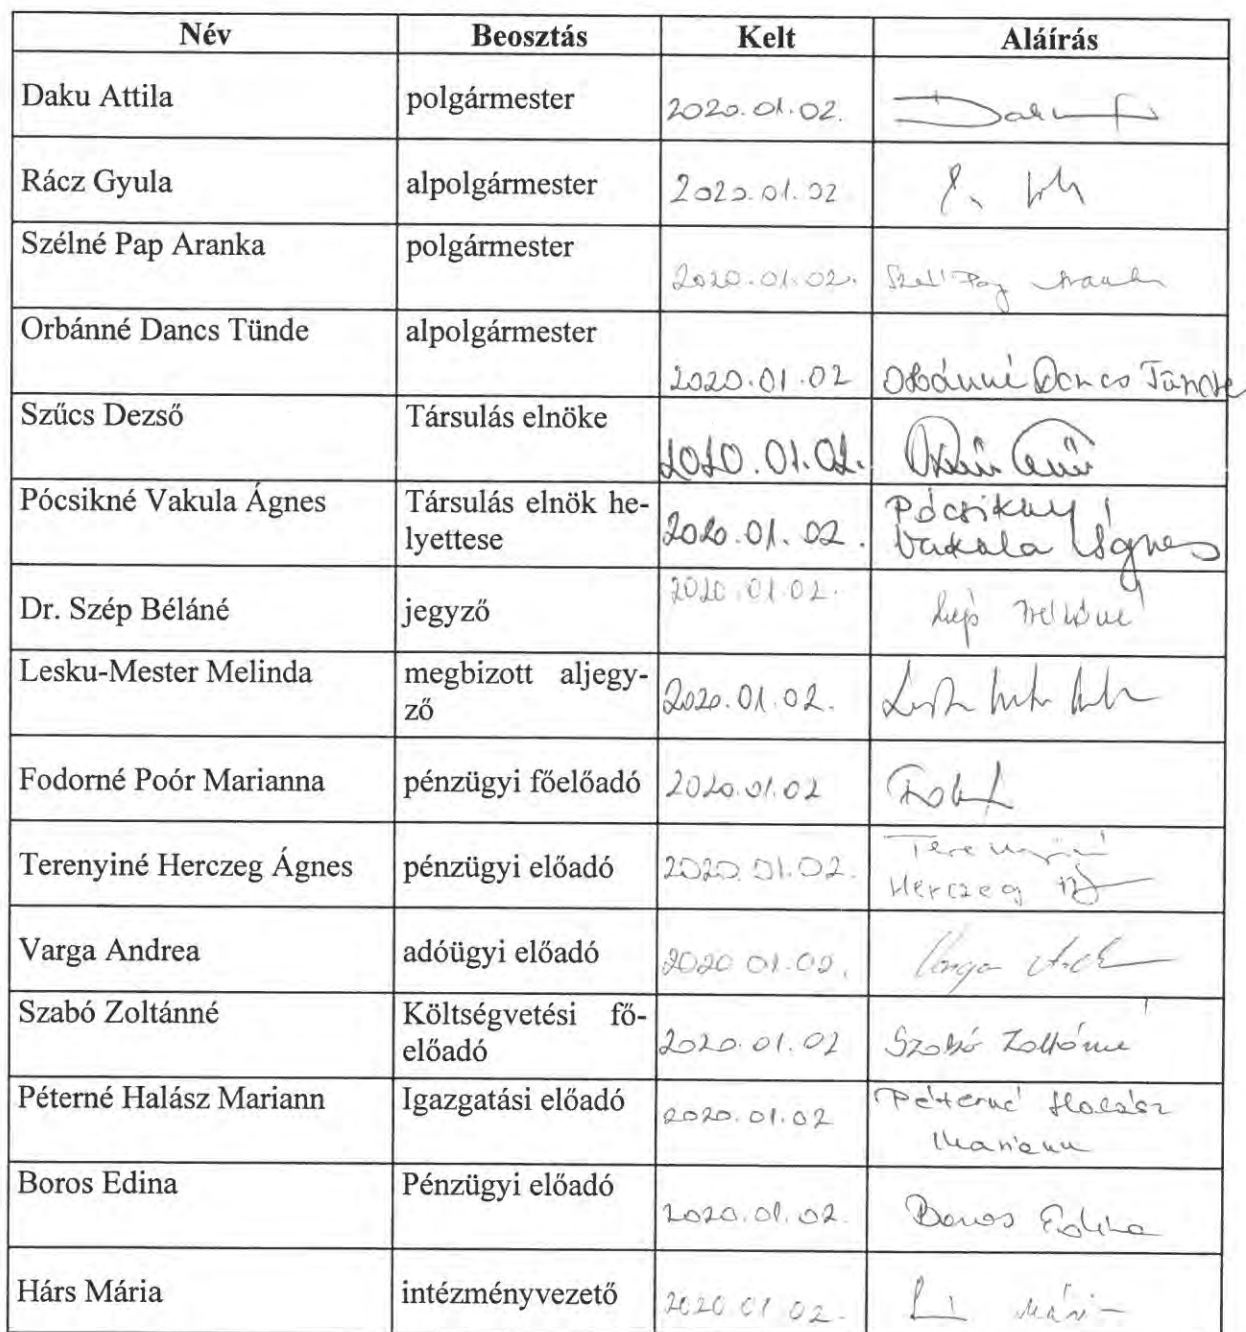 Név Beosztás Kelt Aláírás
Daku Attila polgármester 2020.01.02.
Rácz Gyula alpolgármester 2020.01.02
Szélné Pap Aranka polgármester 2020.01.02.
Orbánné Dancs Tünde alpolgármester
2020.01.02 Orbánné Dancs Tünde
Szűcs Dezső Társulás elnöke
2020.01.02.
Pócsikné Vakula Ágnes Társulás elnök he- Pócsikné
lyettese 2020.01.02. Vakula Ágnes
Dr. Szép Béláné jegyző 2020.01.02.
Lesku-Mester Melinda megbizott aljegy-
ző 2020.01.02.
Fodorné Poór Marianna pénzügyi főelőadó 2020.01.02
Terenyiné Herczeg Ágnes pénzügyi előadó 2020.01.02. Terenyiné
Herczeg
Varga Andrea adóügyi előadó 2020.01.02. Varga
Szabó Zoltánné Költségvetési fő-
előadó 2020.01.02 Szabó Zoltánné
Péterné Halász Mariann Igazgatási előadó 2020.01.02 Péterné Halász
Mariann
Boros Edina Pénzügyi előadó 2020.01.02. Boros Edina
Hárs Mária intézményvezető 2020.01.02.